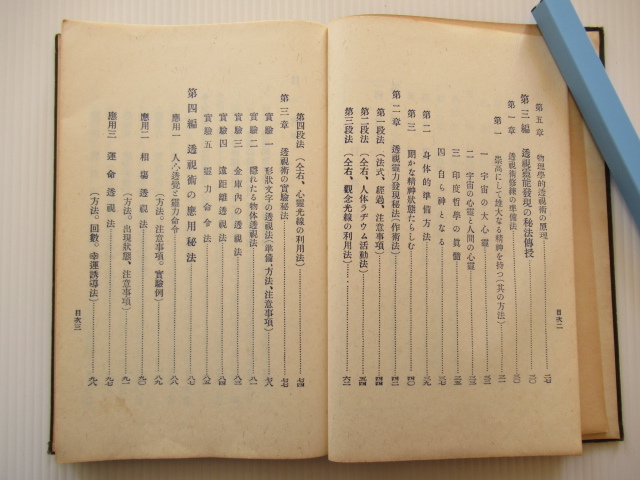 第五章 物理學的透視術の原理
第三編 透視靈能發現の秘法傳授
第一章 透視術修練の準備法
第一 崇高にして雄大なる精神を持つ(其の方法)
一 宇宙の大心靈
二 宇宙の心靈と人間の心靈
三 印度哲學の眞髓
四 自ら神となる
第二 身体的準備方法
第三 朗かな精神狀態たらしむ
第二章 透視靈力發現秘法(作術法)
第一段法(法式、經過、注意事項)
第二段法(仝右、人体ラヂウム活動法)
第三段法(仝右、觀念光線の利用法)
目次二
第四段法(仝右、心靈光線の利用法)
第三章 透視術の實驗秘法
實驗一 形狀文字の透視法(準備、方法、注意事項)
實驗二 隱れたる物体透視法
實驗三 金庫內の透視法
實驗四 遠距離透視法
實驗五 靈力命令法
第四編 透視術の應用秘法
應用一 人心透覺と靈力命令
(方法。注意事項。實驗例)
應用二 相塲透視法
(方法。出現狀態、注意事項)
應用三 運命透視法
(方法。回數。幸運誘導法)
目次三